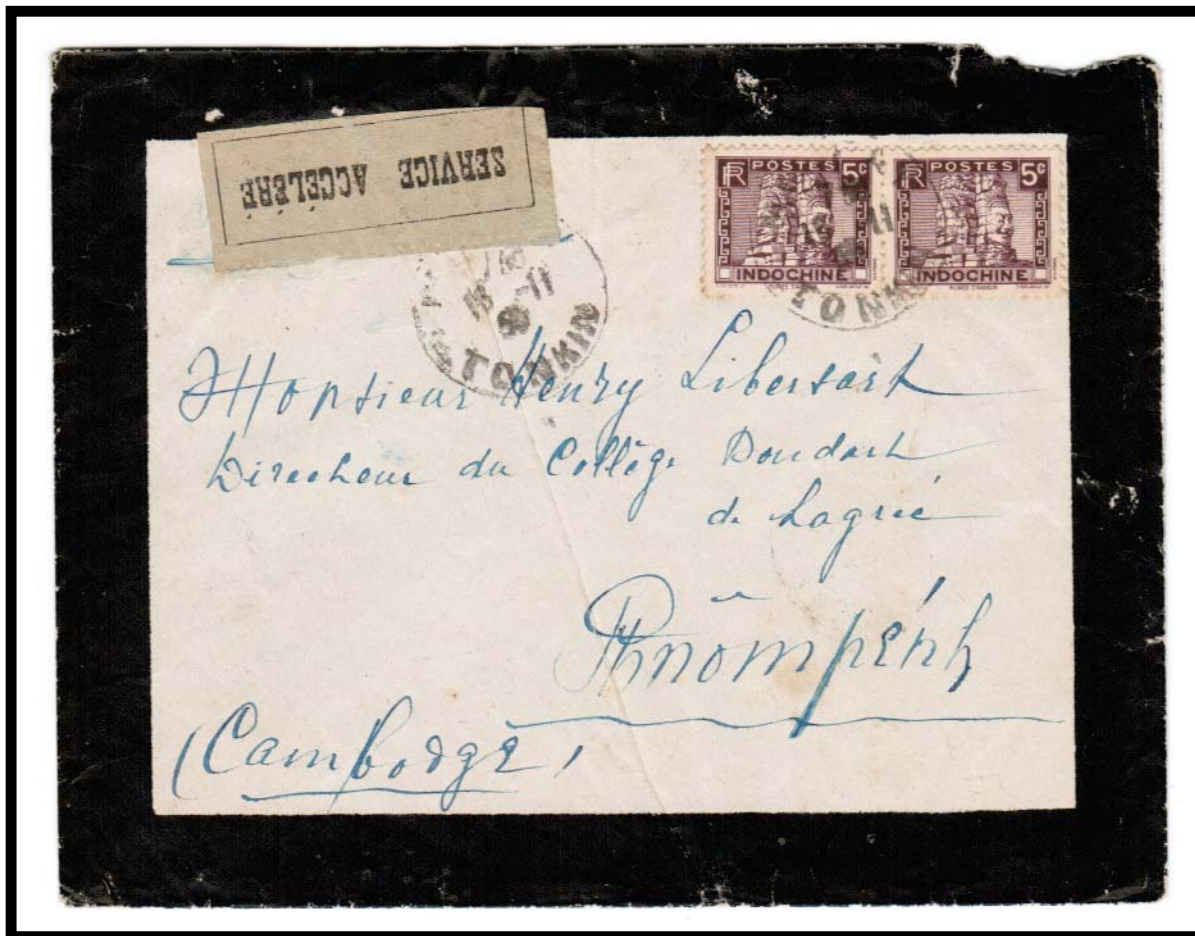 SERVICE ACCÉLÉRÉ
RF POSTES 5c
INDOCHINE
RF POSTES 5c
INDOCHINE
18-11
TONKIN
18-11
TONKIN
Monsieur Henry Libersart
Directeur du Collège Doudart
de Lagrée
Phnômpénh
(Cambodge)